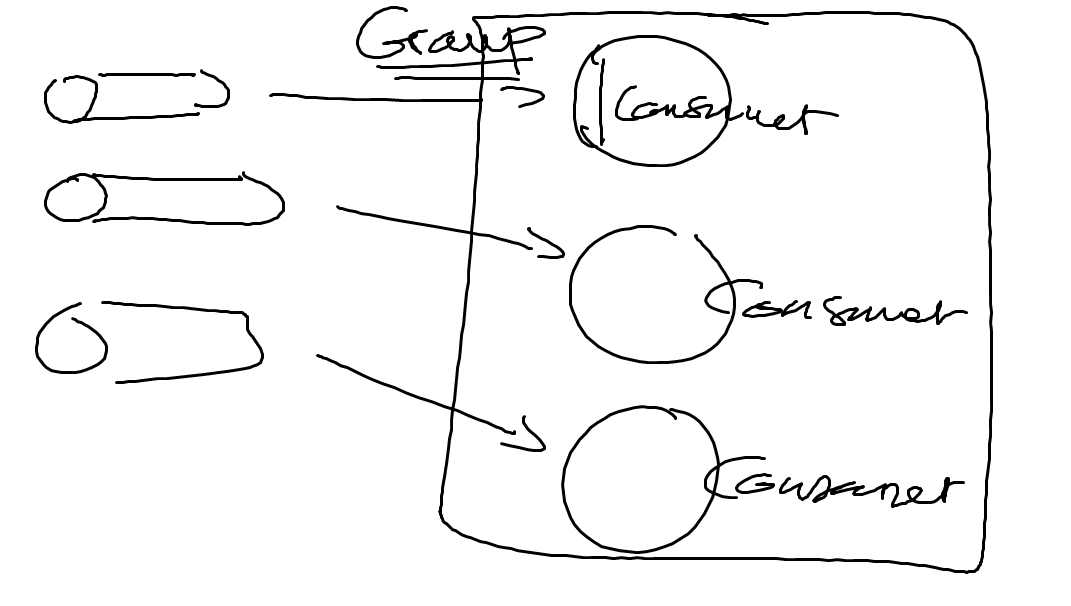 Group
Consumer
Consumer
Consumer